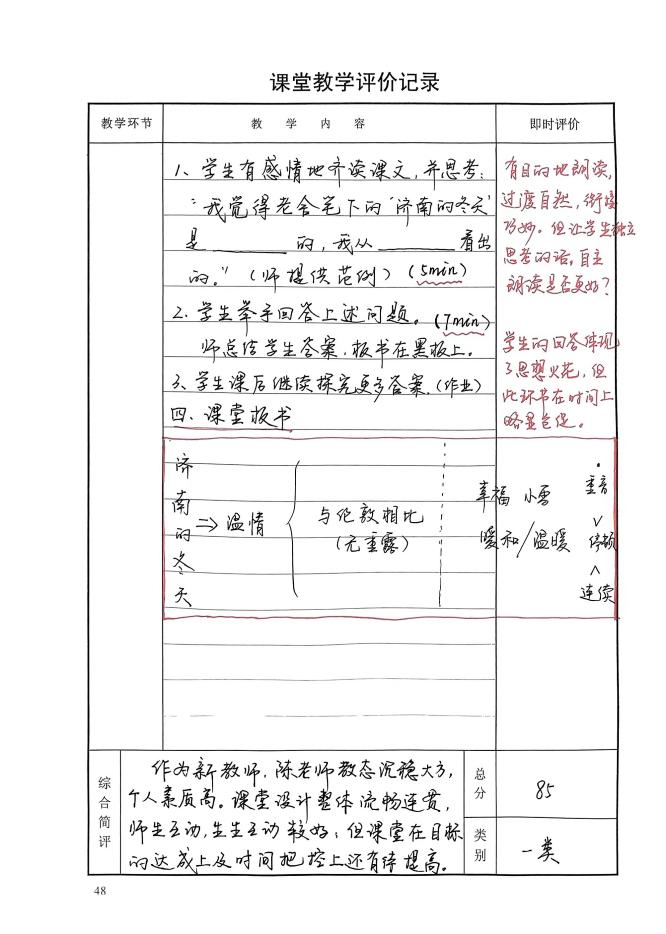 课堂教学评价记录
教学环节 教 学 内 容 即时评价
1、学生有感情地齐读课文，并思考：
“我觉得老舍笔下的‘济南的冬天’
是______的，我从______看出
的。”（师提供范例）（5min）
2、学生举手回答上述问题。（7min）
师总结学生答案，板书在黑板上。
3、学生课后继续探究更多答案。（作业）
四、课堂板书
有目的地朗读，
过度自然，衔接
巧妙。但让学生独立
思考的话，自主
朗读是否更好？
学生的回答体现
了思想火花，但
此环节在时间上
略显仓促。
济南的冬天
⇒温情
与伦敦相比
（无重露）
幸福 小雪
暖和/温暖
·
重音
∨
停顿
∧
连续
综合简评
作为新教师，陈老师教态沉稳大方，
个人素质高。课堂设计整体流畅连贯，
师生互动，生生互动较好；但课堂在目标
的达成上及时间把控上还有待提高。
总分 85
类别 一类
48